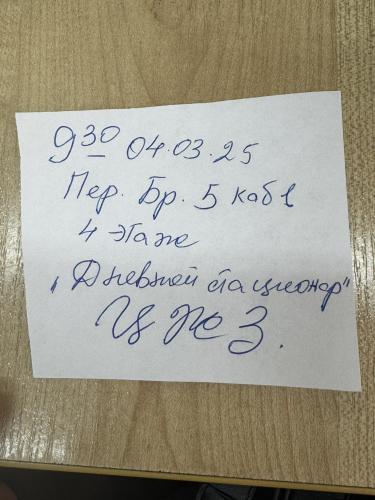 9 30 04.03.25
Пер. Бр. 5 каб 1
4 этаж
"Дневной стационар"
ЦЖЗ.